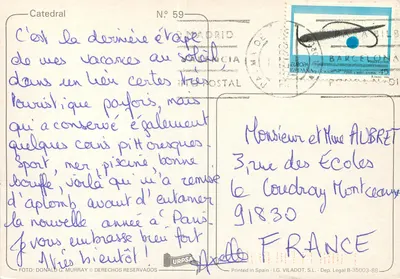 Catedral
N.º 59
C'est la dernière étape
de mes vacances au soleil,
dans un lieu certes très
touristique parfois, mais
qui a conservé également
quelques coins pittoresques.
Sport, mer, piscine bonne
bouffe, voilà qui m'a remise
d'aplomb avant d'entamer
la nouvelle année à Paris.
Je vous embrasse bien fort
A très bientôt!
Axelle
MADRID
BARCELONA
POSTAL
Monsieur et Mme AUBRET
3, rue des Ecoles
Le Coudray Montceaux
91830
FRANCE
FOTO: DONALD G. MURRAY © DERECHOS RESERVADOS
Printed in Spain - I.G. VILADOT, S.L. - Dep. Legal